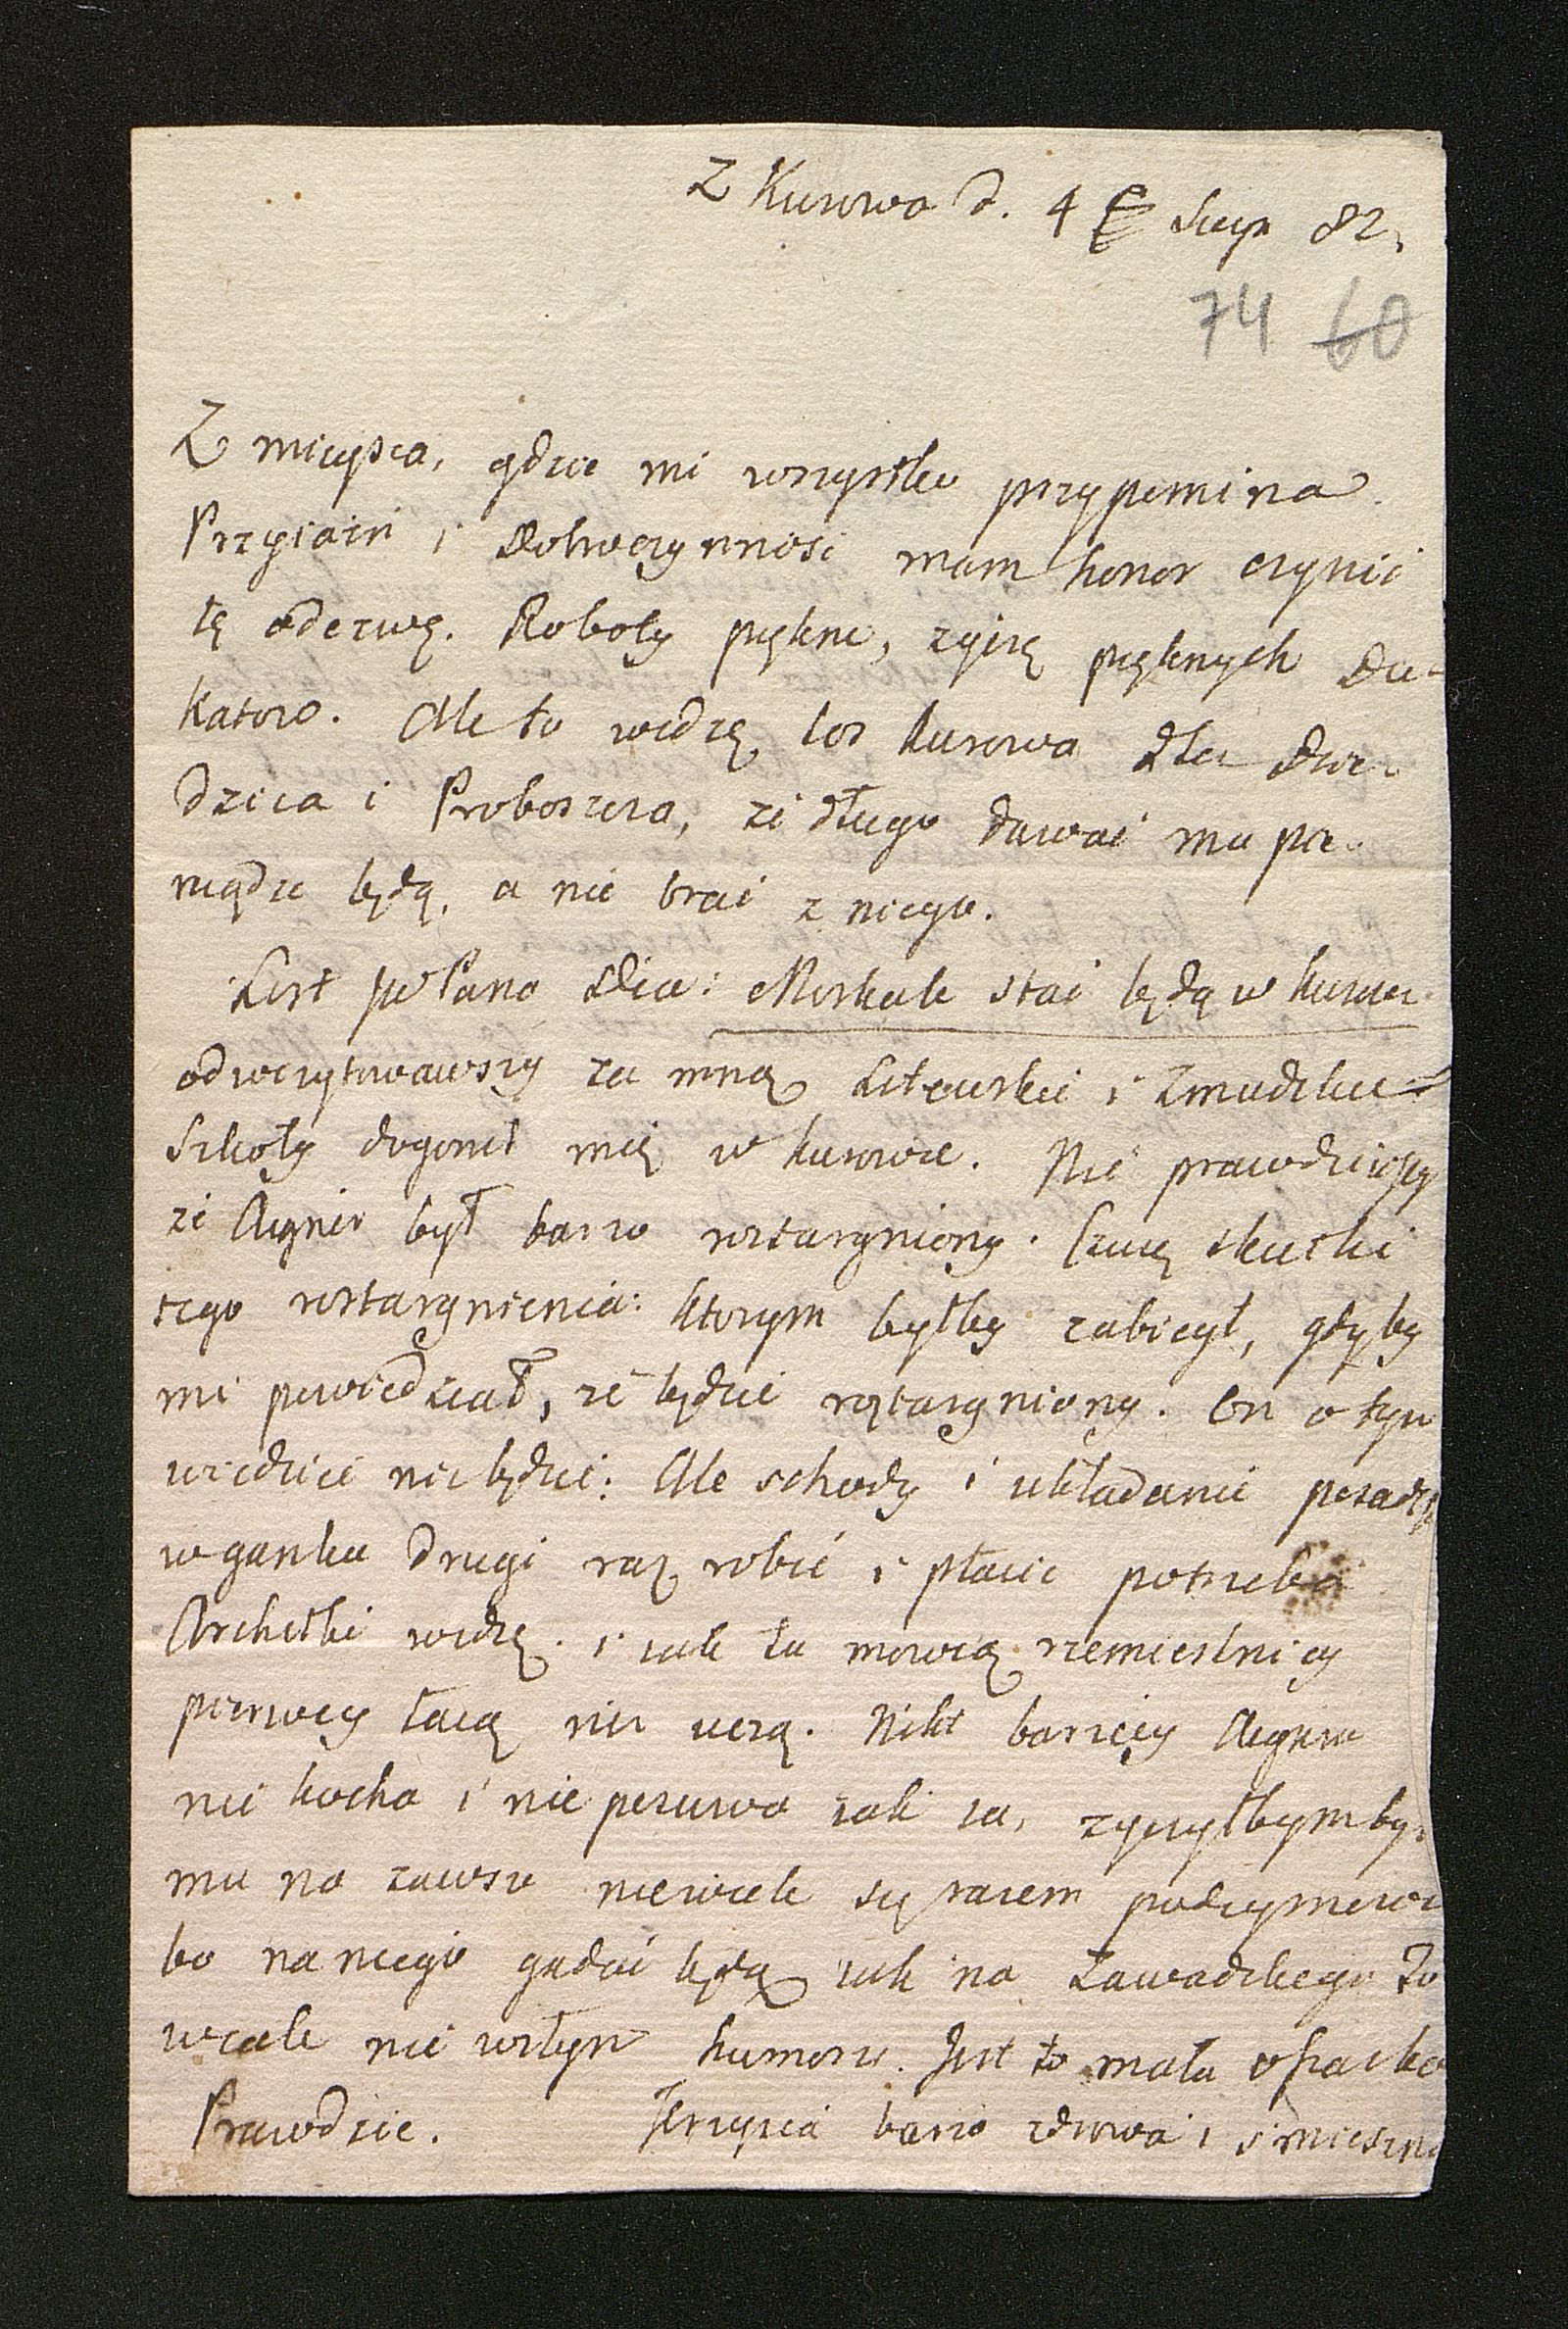 Z Kurowa d. 4 Sierp 82.
74 60
Z mieysca, gdzie mi wszystko przypomina
Przyiaźń i Dobroczynność mam honor czynić
tę odezwę. Roboty piękne, życzę pięknych Du-
katow. Ale to widzę los Kurowa dla Dzie-
dzica i Proboszcza, że długo dawać mu pie-
niądze będą, a nie brać z niego.
List JW Pana Dia: Moskale stać będą w Kurow.
odwizytowawszy za mną Litewskie i Zmudzkie
Szkoły dogonił mię w Kurowie. Nic prawdziwszy
że Aygner był barzo roztargniony. Czuię skutki
tego roztargnienia: ktorym byłby zabiegł, gdyby
mi powiedział, że będzie roztargniony. On o tym
wiedzieć nie będzie: Ale schody i układanie posadz
w ganku drugi raz robić i płacić potrzeba
Architki widzę i iak tu mowią rzemieslnicy
pierwey łacą nie uczą. Nikt barziey Aygnra
nie kocha i nie poszuwa iak ia, zyczyłbym by
mu na zawsze niewiele się razem podeymowa
bo na niego gadać będą iak na Zawadzkiego To
wcale nie wstyn humorze. Jest to mała ofiarka
Prawdzie. Jerzysia barzo zdrowa i smieszna